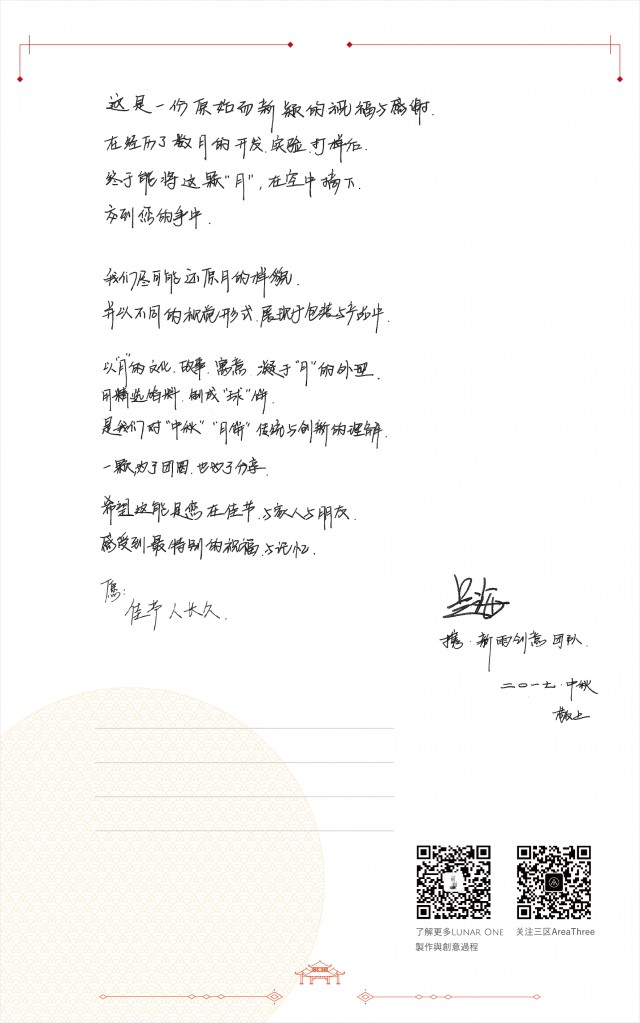 这是一份原始而新颖的祝福与感谢.
在经历了数月的开发.实验.打样后.
终于能将这颗"月",在空中摘下.
交到您的手中.
我们尽可能还原月的样貌.
并以不同的视觉形式.展现于包装与产品中.
以"月"的文化.故事.寓意.凝于"月"的外型.
用精选馅料.制成"球"饼.
是我们对"中秋""月饼"传统与创新的理解.
一颗,为了团圆.也为了分享.
希望这能是您在佳节.与家人与朋友.
感受到最特别的祝福.与记忆.
愿:
佳节人长久.
携·新雨创意团队.
二〇一七·中秋
敬上
了解更多LUNAR ONE
製作與創意過程
关注三区AreaThree